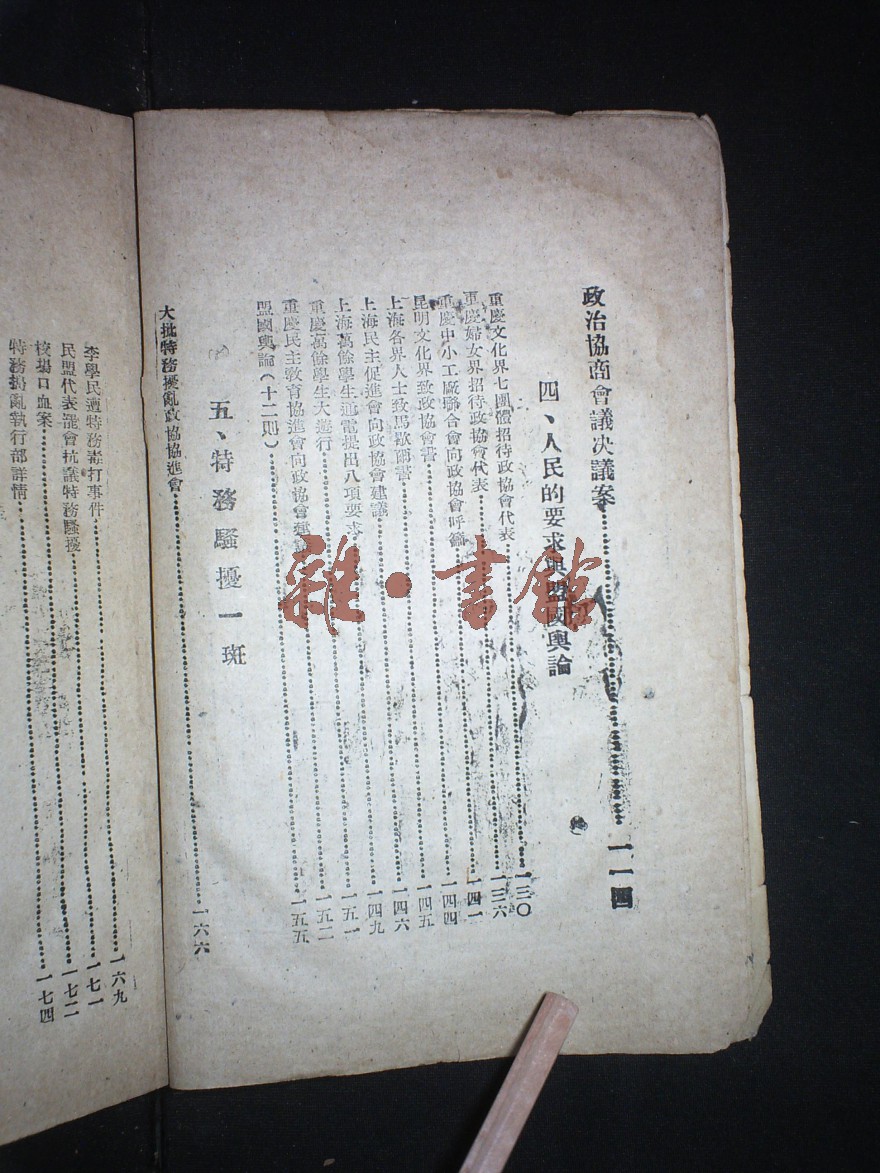 政治協商會議决議案…………一一四
四、人民的要求與盟國輿論
重慶文化界七團體招待政協會代表…………一三〇
重慶婦女界招待政協會代表…………一三六
重慶中小工廠聯合會向政協會呼籲…………一四一
昆明文化界致政協會書…………一四四
上海各界人士致馬歇爾書…………一四五
上海民主促進會向政協會建議…………一四六
上海萬餘學生通電提出八項要求…………一四九
重慶萬餘學生大遊行…………一五一
重慶民主教育協進會向政協會建議…………一五二
盟國輿論(十二則)…………一五五
五、特務騷擾一斑
大批特務擾亂政協協進會…………一六六
李學民遭特務毒打事件…………一六九
民盟代表罷會抗議特務騷擾…………一七一
校場口血案…………一七二
特務搗亂執行部詳情…………一七四
雜·書館